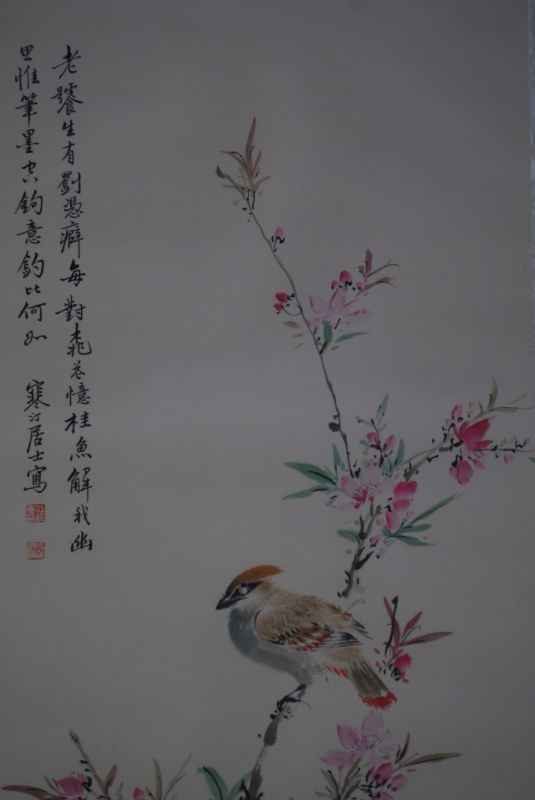 老饕生有劉憑癖每對桃花憶桂魚解我幽
思惟筆墨空鉤意釣比何如
寒汀居士寫